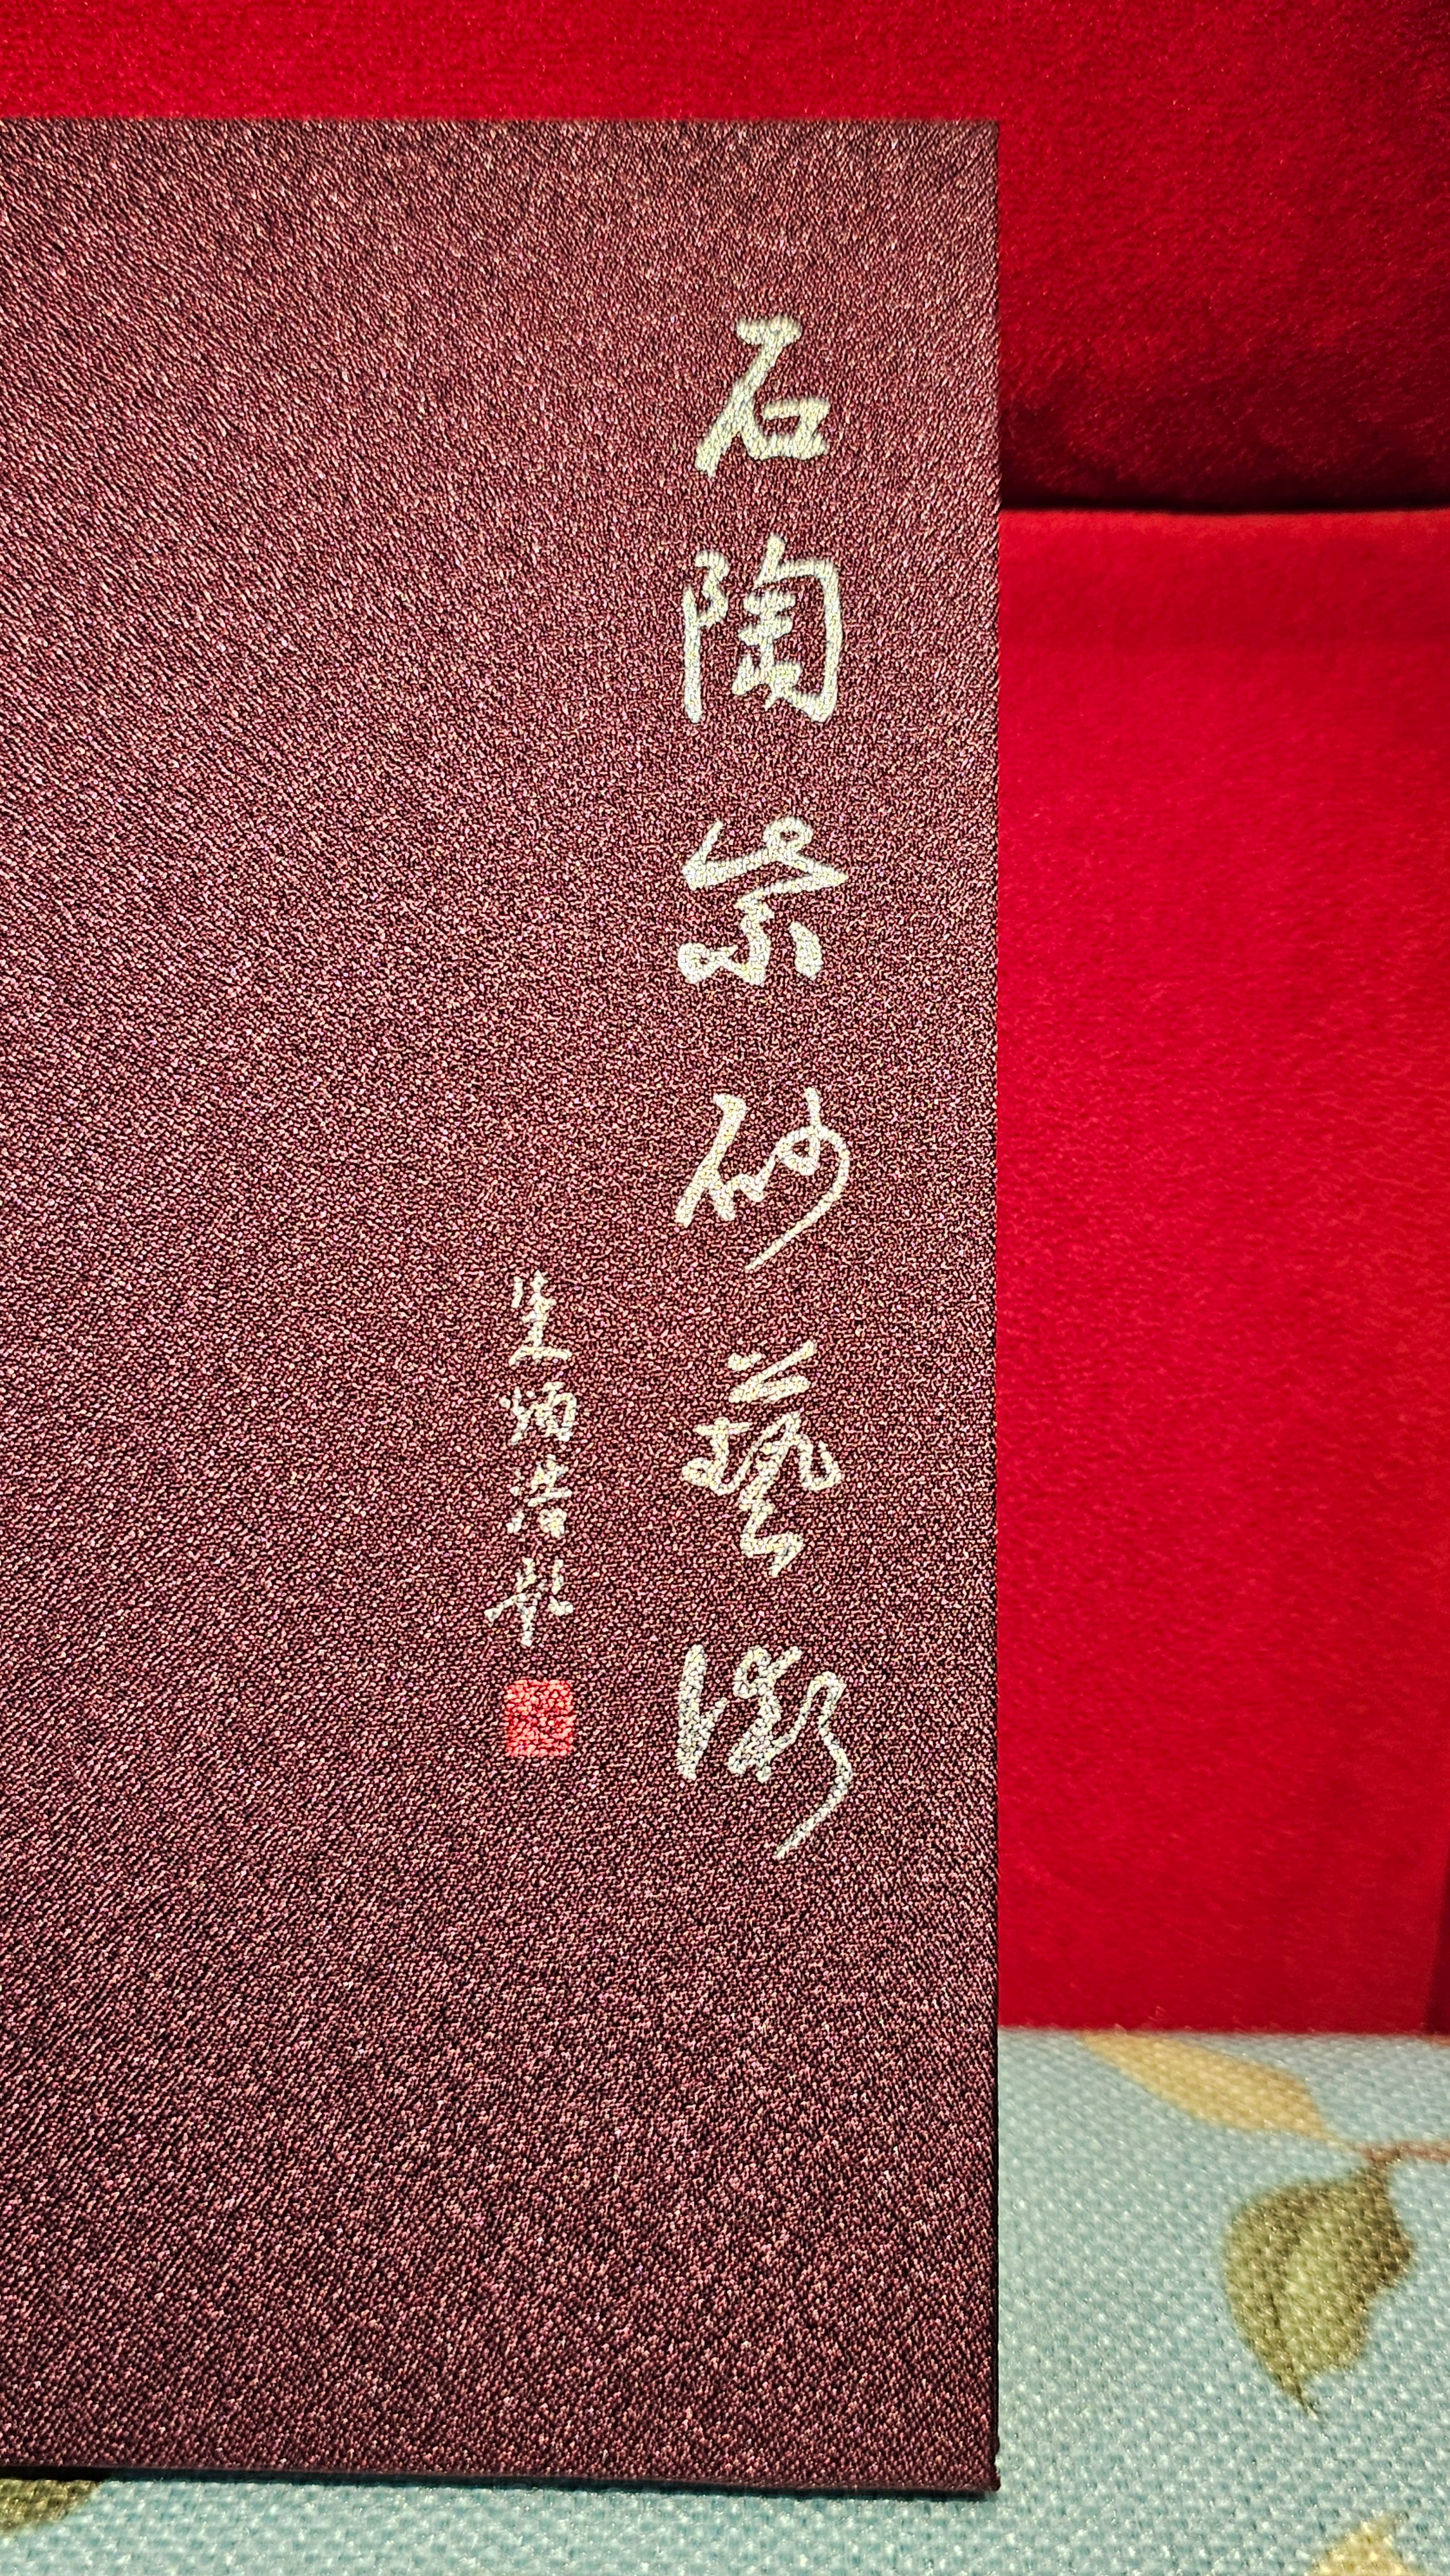 石陶紫砂藝術
生炳浩題